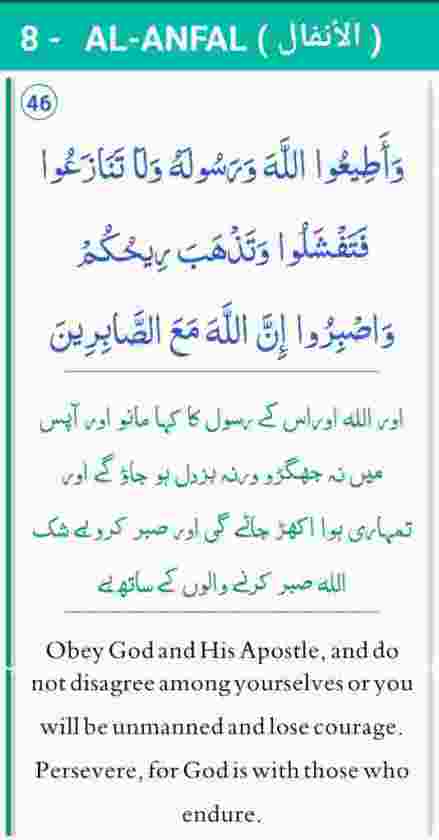 8 - AL-ANFAL ( الأنفال )
46
وَأَطِيعُوا اللَّهَ وَرَسُولَهُ وَلَا تَنَازَعُوا
فَتَفْشَلُوا وَتَذْهَبَ رِيحُكُمْ
وَاصْبِرُوا إِنَّ اللَّهَ مَعَ الصَّابِرِينَ
اور الله اوراس کے رسول کا کہا مانو اور آپس
میں نہ جھگڑو ورنہ بزدل ہو جاؤ گے اور
تمہاری ہوا اکھڑ جائے گی اور صبر کرو بے شک
الله صبر کرنے والوں کے ساتھ ہے
Obey God and His Apostle, and do
not disagree among yourselves or you
will be unmanned and lose courage.
Persevere, for God is with those who
endure.